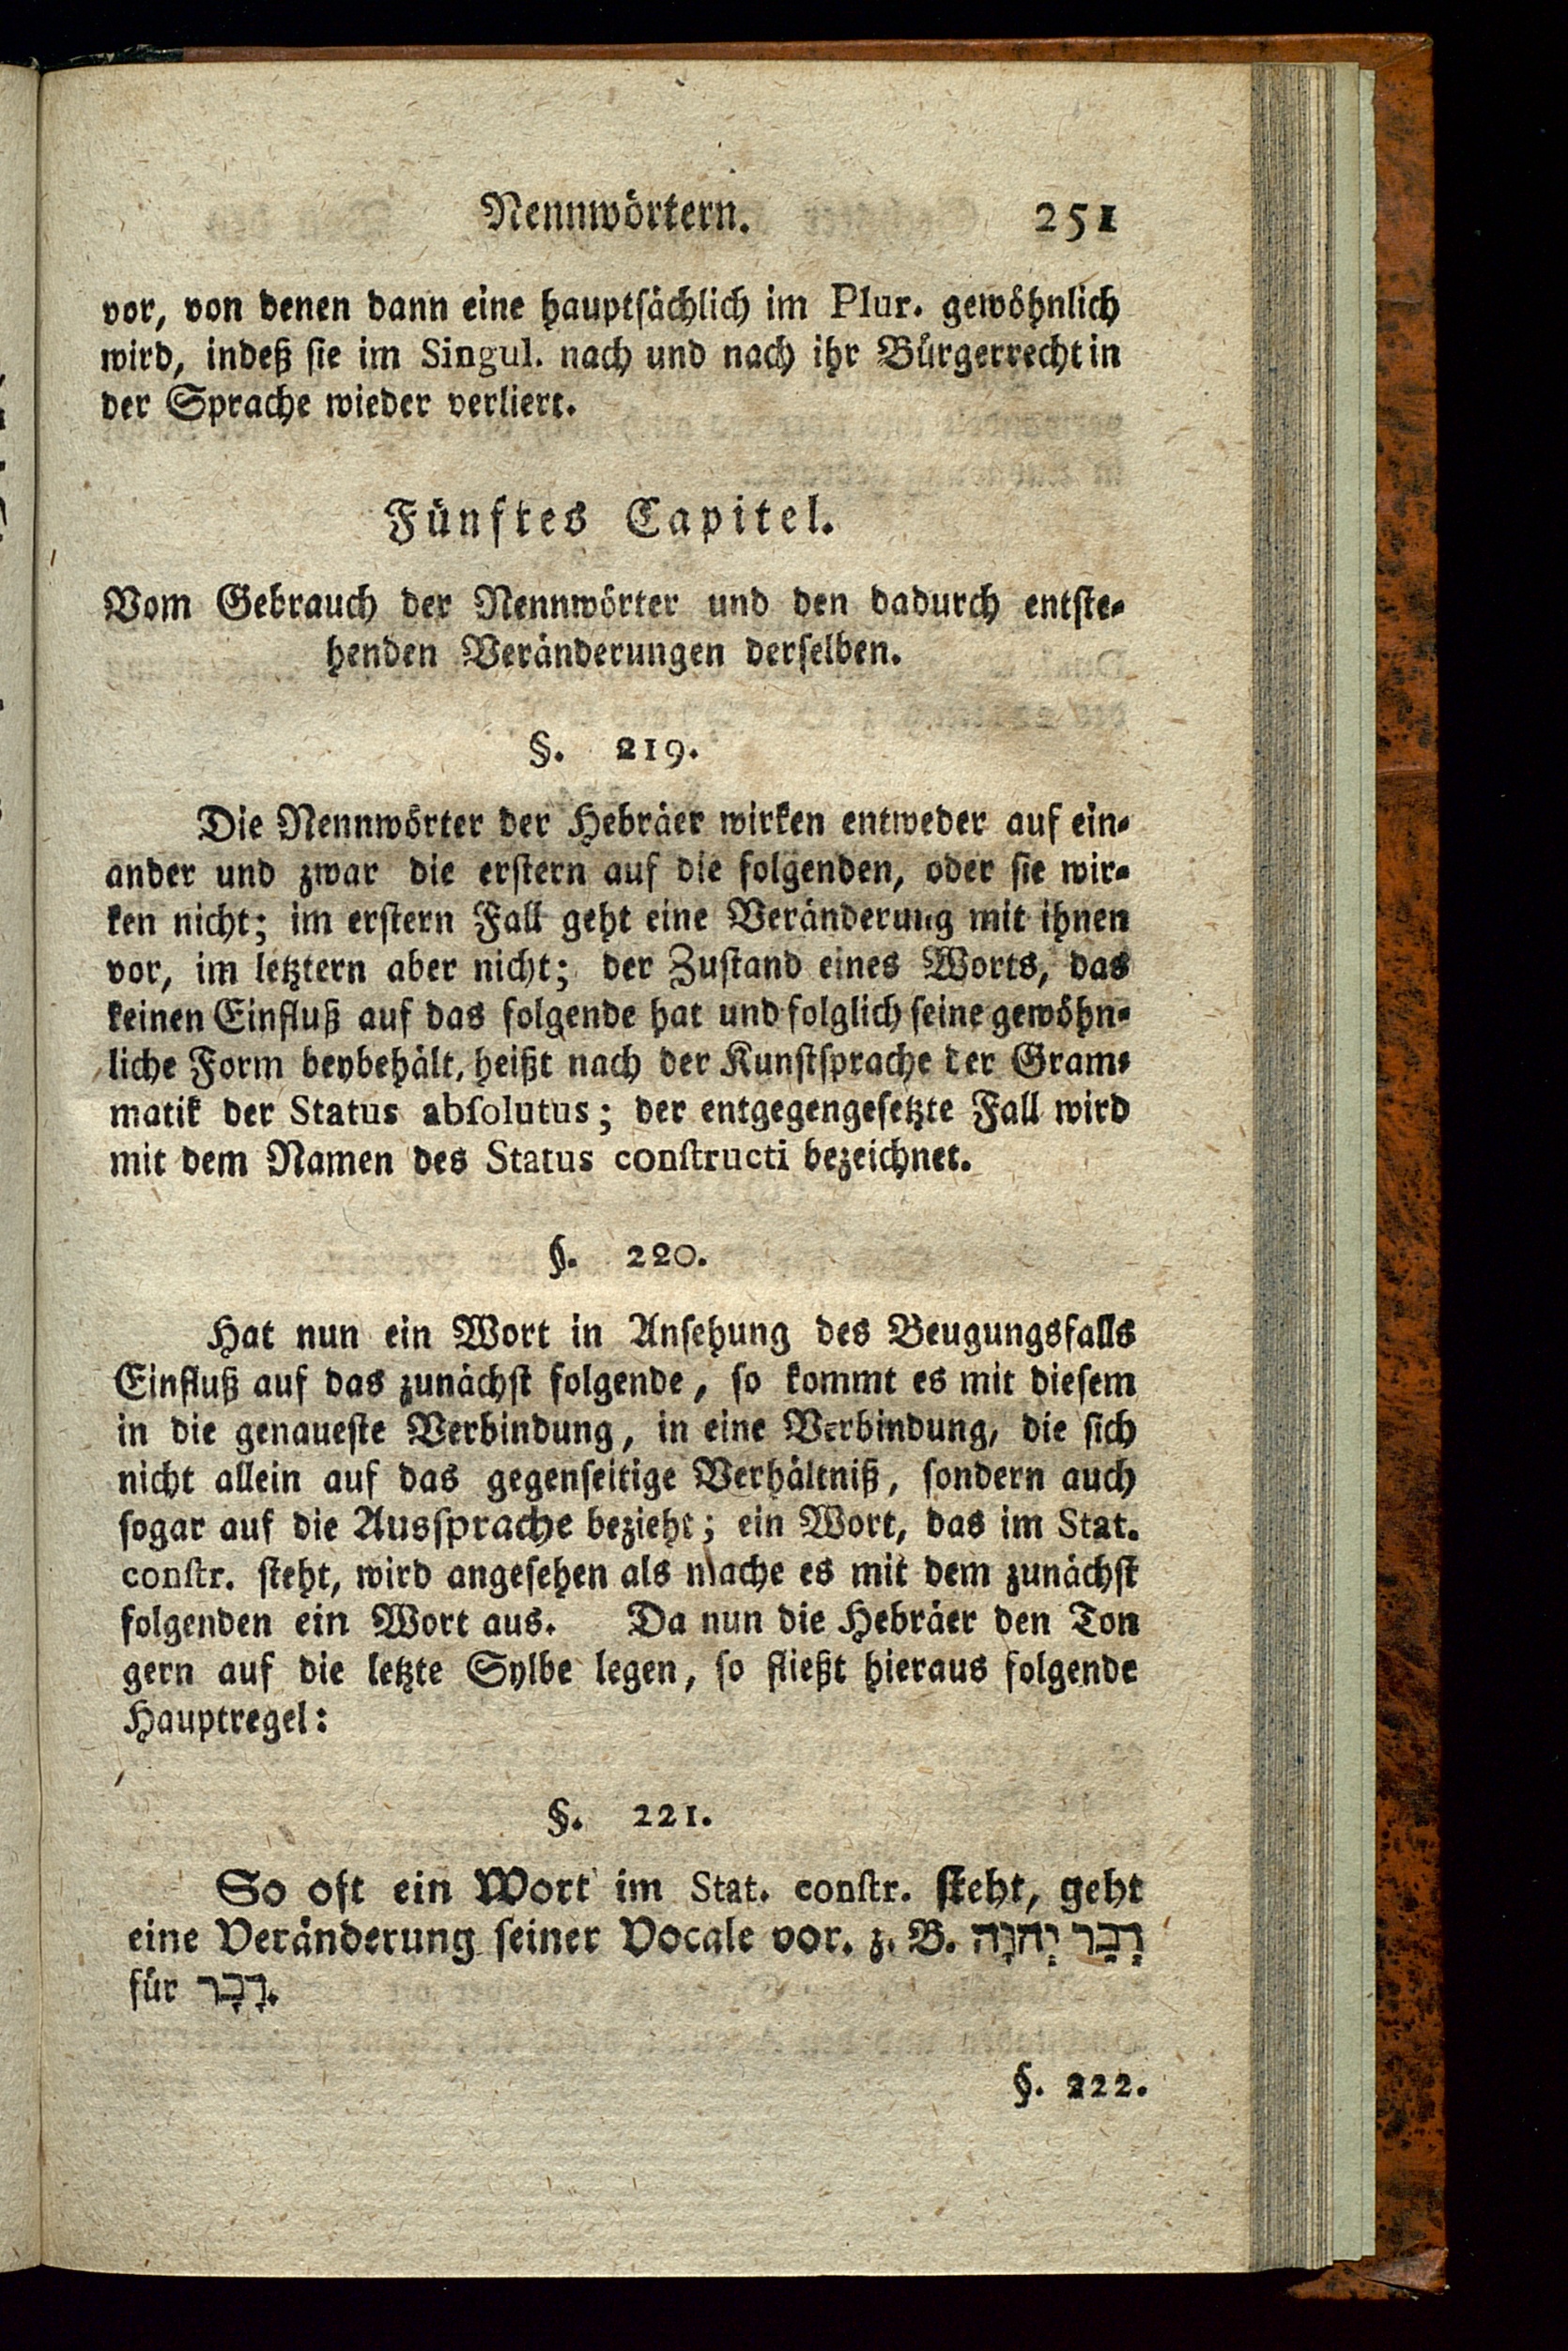 Nennwörtern. 251
vor, von denen dann eine hauptsächlich im Plur. gewöhnlich
wird, indeß sie im Singul. nach und nach ihr Bürgerrecht in
der Sprache wieder verliert.
Fünftes Capitel.
Vom Gebrauch der Nennwörter und den dadurch entste-
henden Veränderungen derselben.
§. 219.
Die Nennwörter der Hebräer wirken entweder auf ein-
ander und zwar die erstern auf die folgenden, oder sie wir-
ken nicht; im erstern Fall geht eine Veränderung mit ihnen
vor, im letztern aber nicht; der Zustand eines Worts, das
keinen Einfluß auf das folgende hat und folglich seine gewöhn-
liche Form beybehält, heißt nach der Kunstsprache der Gram-
matik der Status absolutus; der entgegengesetzte Fall wird
mit dem Namen des Status constructi bezeichnet.
§. 220.
Hat nun ein Wort in Ansehung des Beugungsfalls
Einfluß auf das zunächst folgende, so kommt es mit diesem
in die genaueste Verbindung, in eine Verbindung, die sich
nicht allein auf das gegenseitige Verhältniß, sondern auch
sogar auf die Aussprache bezieht; ein Wort, das im Stat.
constr. steht, wird angesehen als mache es mit dem zunächst
folgenden ein Wort aus. Da nun die Hebräer den Ton
gern auf die letzte Sylbe legen, so fließt hieraus folgende
Hauptregel:
§. 221.
So oft ein Wort im Stat. constr. steht, geht
eine Veränderung seiner Vocale vor. z. B. דָבָר יְהוָה
für דָבָר.
§. 222.